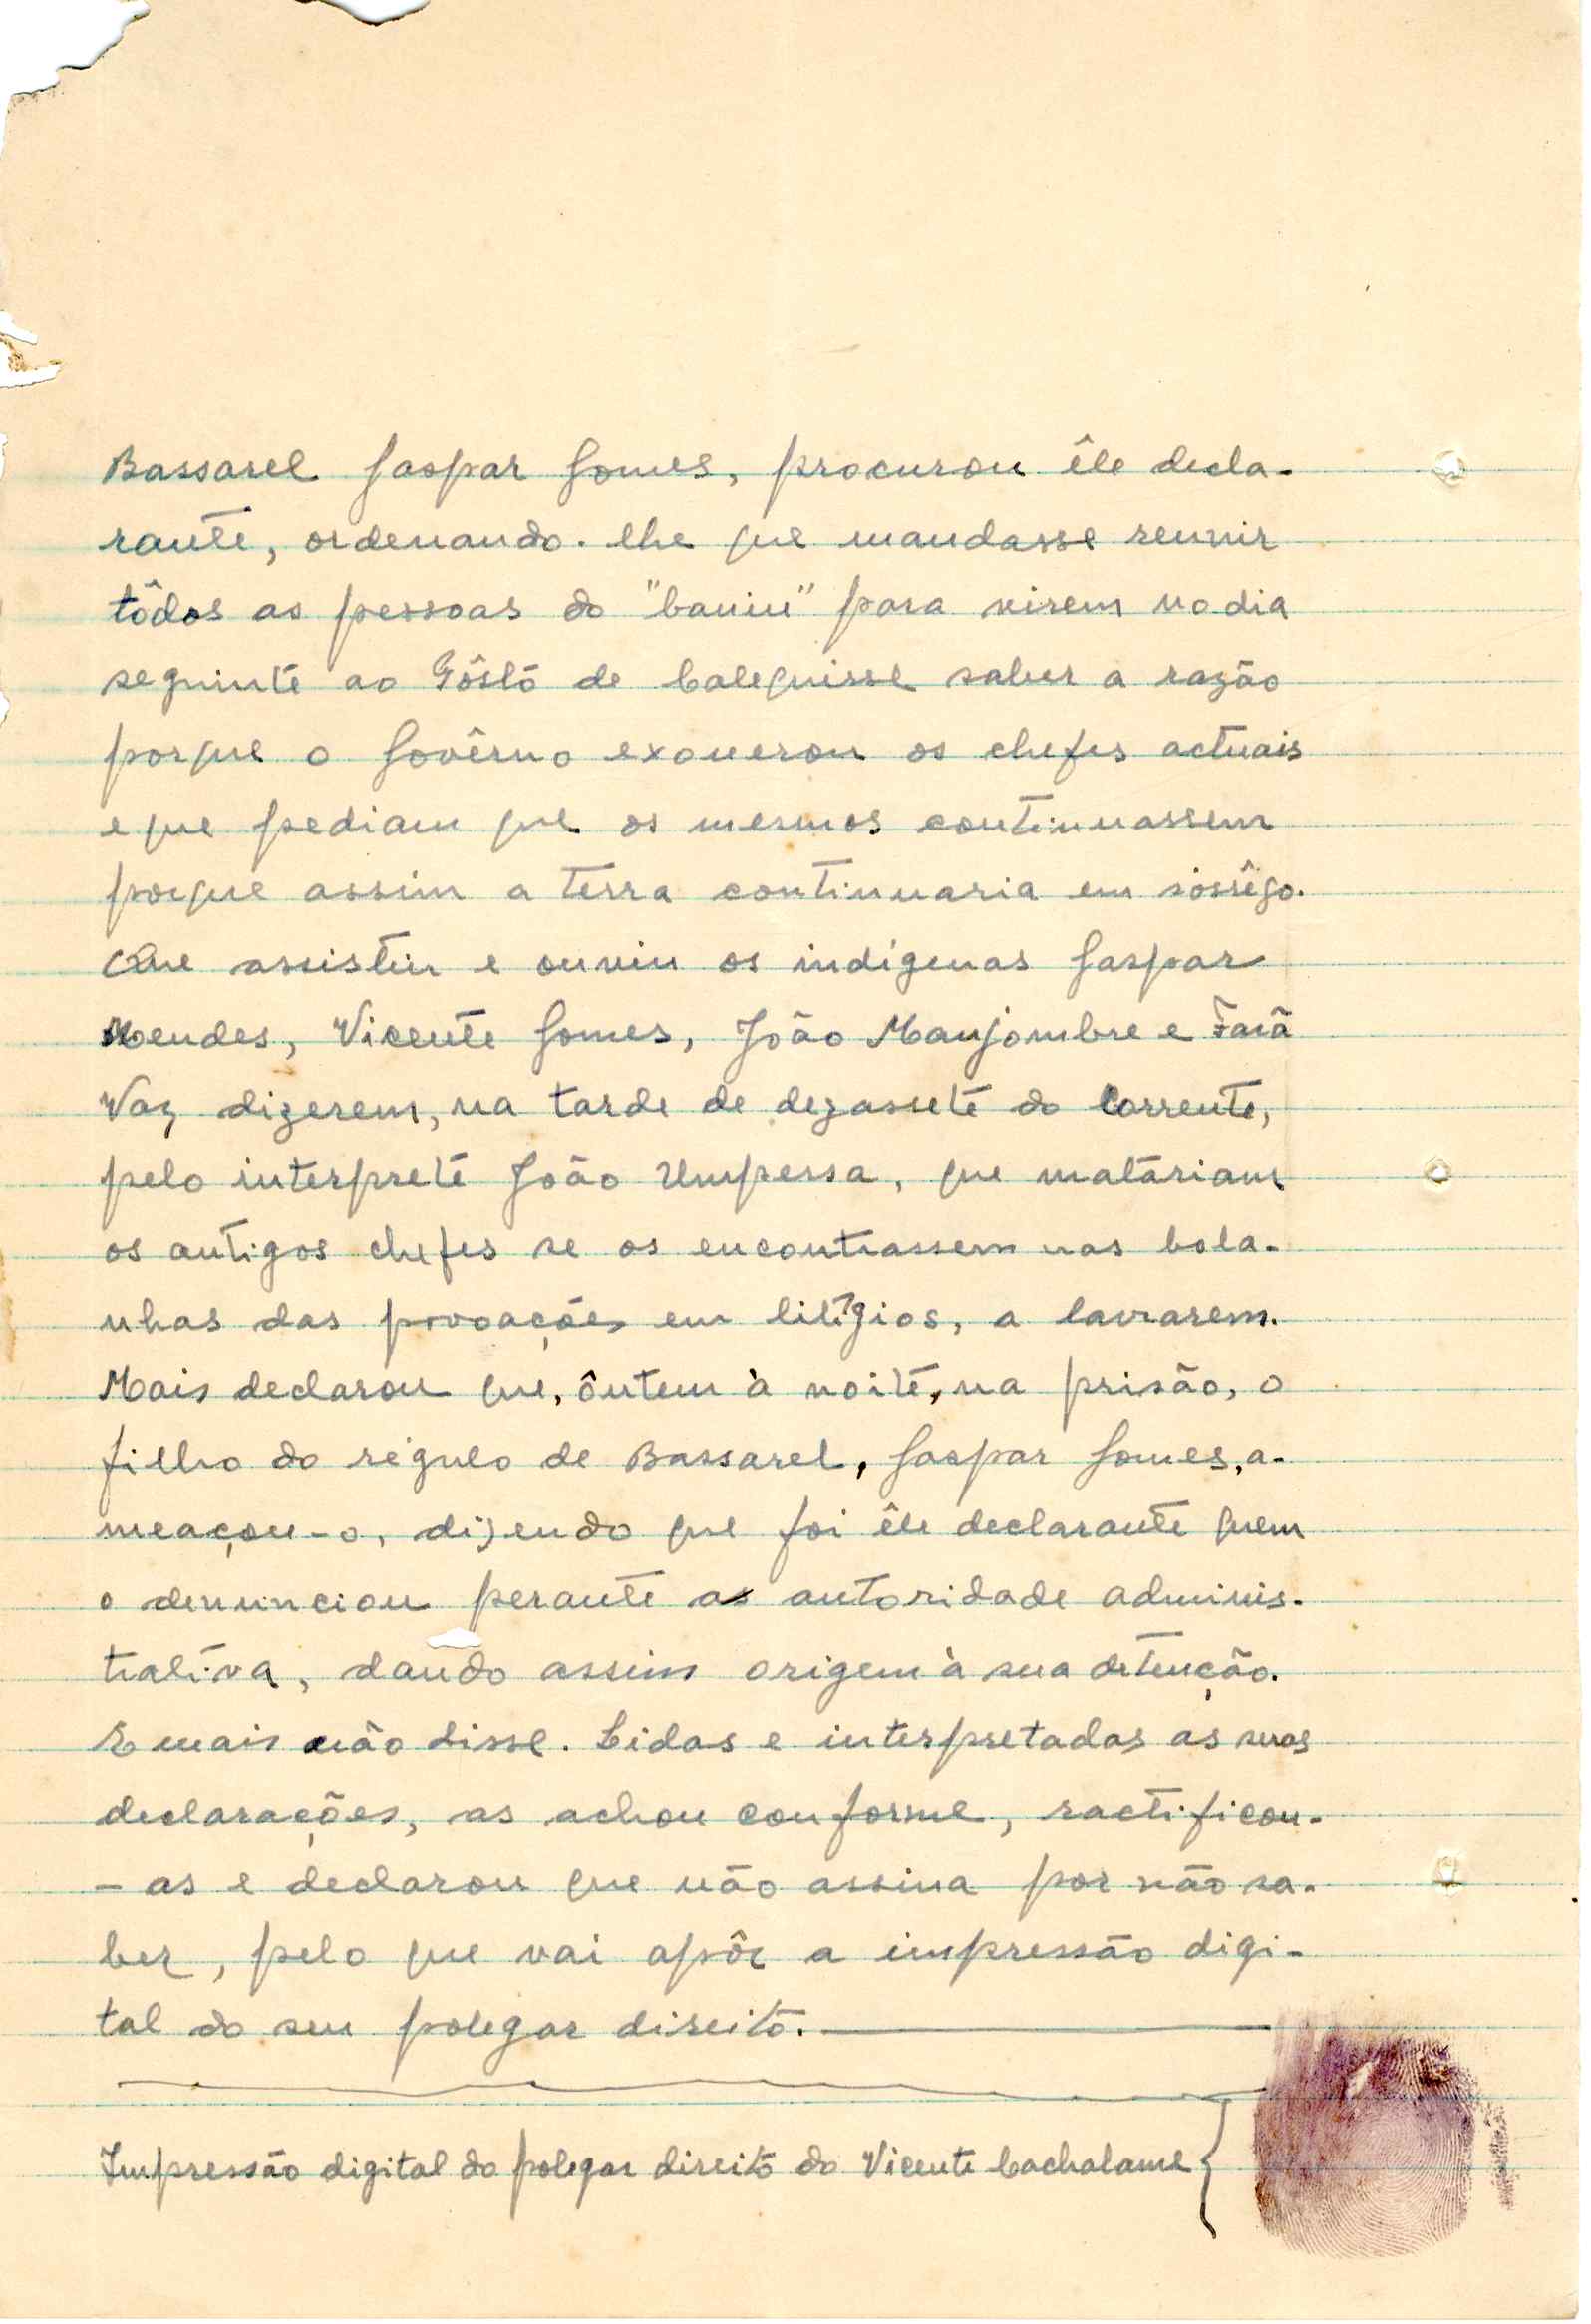 Bassarel Gaspar Gomes, procurou êle decla-
rante, ordenando-lhe que mandasse reunir
tôdos as pessoas do "Caniu" para virem no dia
seguinte ao Pôsto de Calequisse saber a razão
porque o Govêrno exonerou os chefes actuais
e que pediam que os mesmos continuassem
porque assim a terra continuaria em sossêgo.
Que assistiu e ouviu os indígenas Gaspar
Mendes, Vicente Gomes, João Manjombre e
Vaz dizerem, na tarde de dezassete do Corrente,
pelo interprete João Umpessa, que matariam
os antigos chefes se os encontrassem nas bola-
nhas das povoações em litígios, a lavrarem.
Mais declarou que, ôntem à noite, na prisão, o
filho do régulo de Bassarel, Gaspar Gomes, a-
meaçou-o, dizendo que foi êle declarante quem
o denunciou perante as autoridade adminis-
trativa, dando assim origem à sua detenção.
E mais não disse. Lidas e interpretadas as suas
declarações, as achou conforme, ractificou-
-as e declarou que não assina por não sa-
ber, pelo que vai apôr a impressão digi-
tal do seu polegar direito.
Impressão digital do polegar direito do Vicente Cachalame